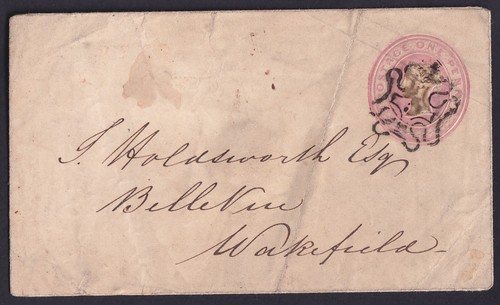 POSTAGE ONE PENNY
S. Holdsworth Esq
BelleVue
Wakefield